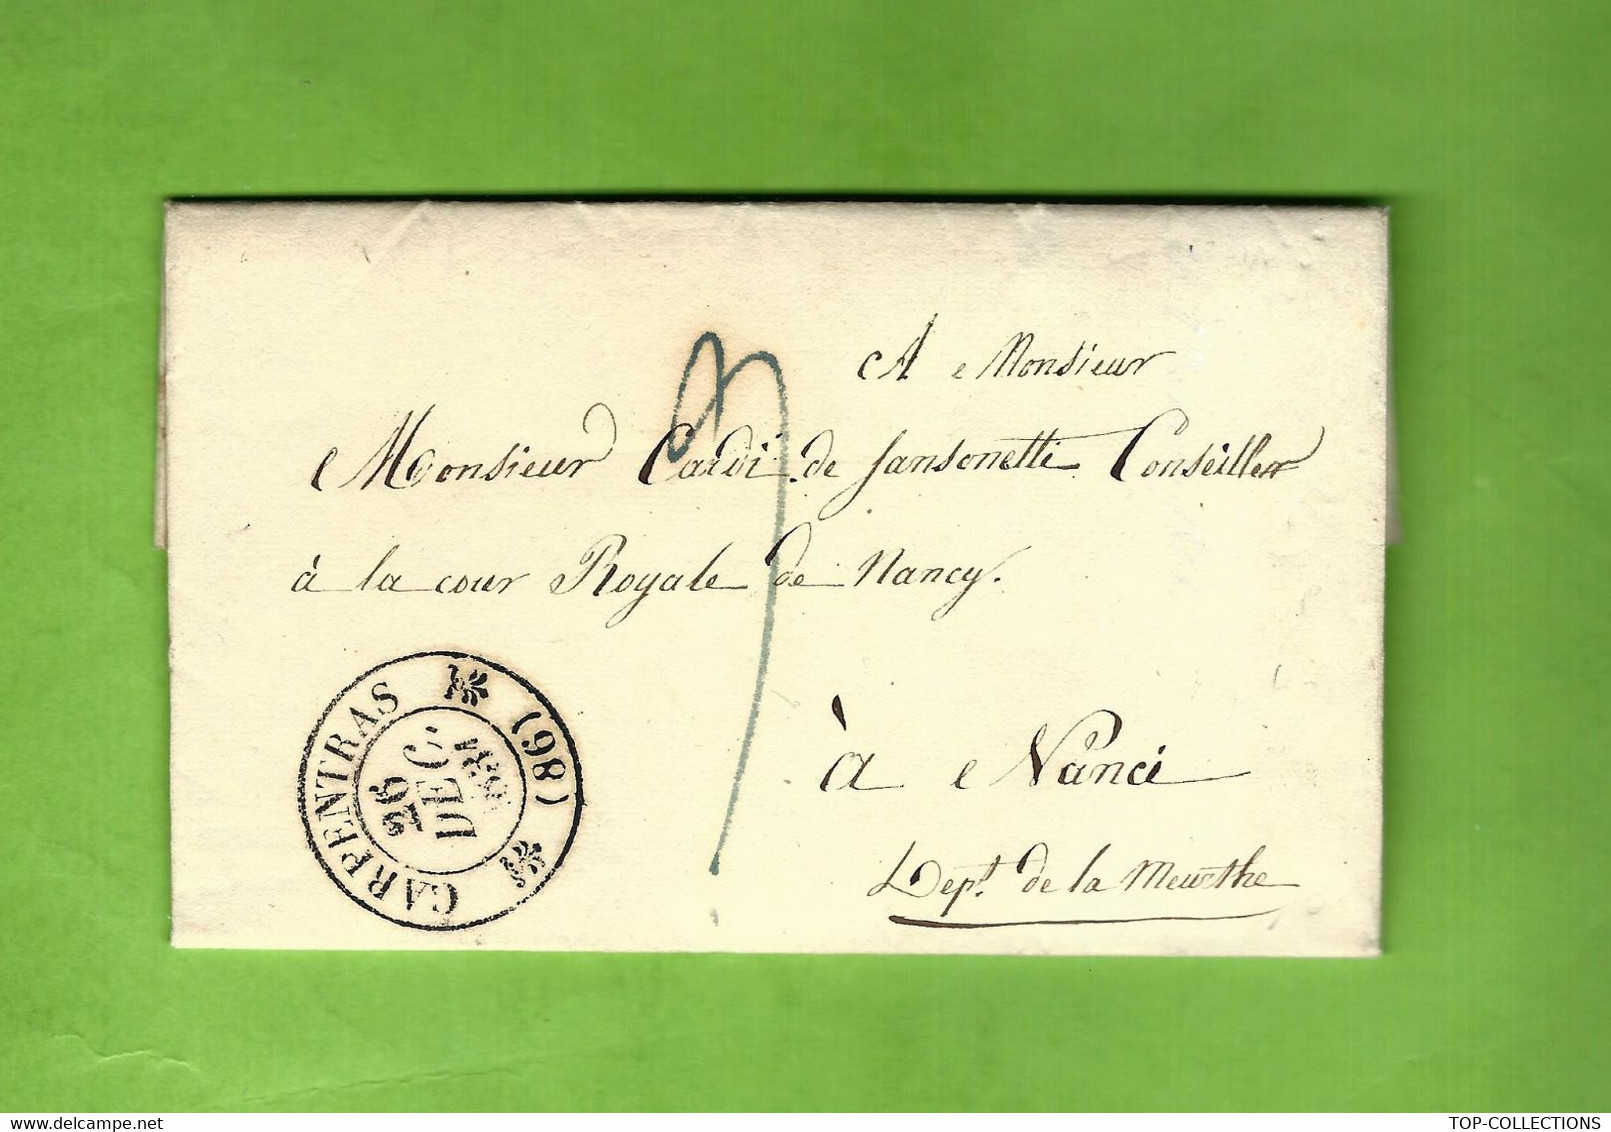 A Monsieur
Monsieur Cardi de Sansonetti Conseiller
à la cour Royale de Nancy.
à Nanci
Dept. de la Meurthe
CARPENTRAS (98)
26
DEC.
TOP-COLLECTIONS